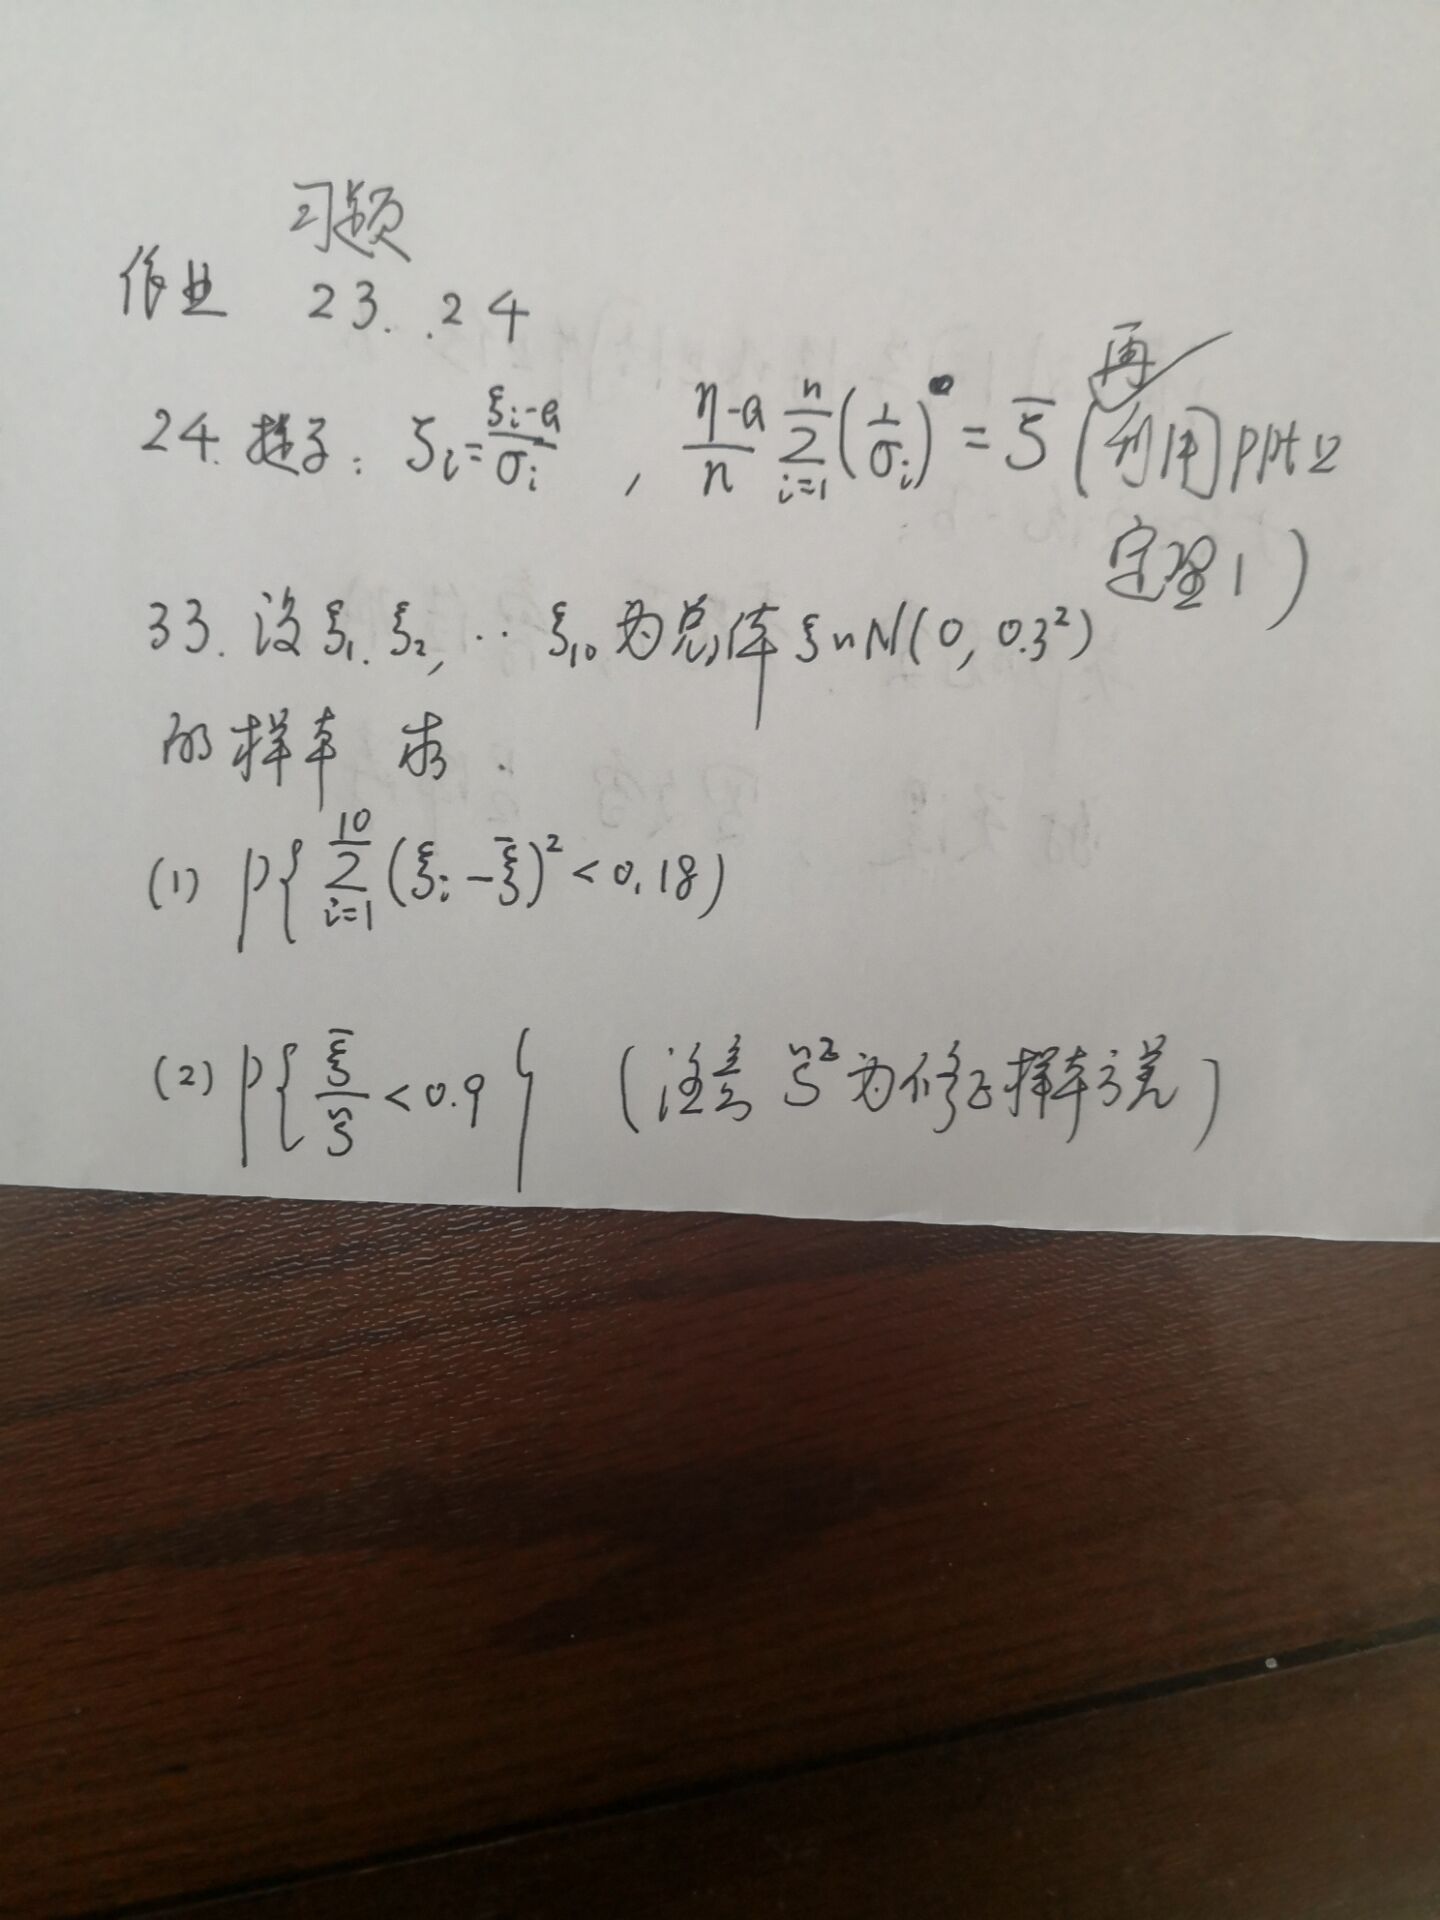 习题
作业 23. .24
24. 提示: ζi = (ξi-a)/σi , (η-a)/n ∑_{i=1}^{n} (1/σi) = ζ̄ (再利用PPt上
定理1)
33. 设ξ1. ξ2, .. ξ10 为总体 ξ~N(0, 0.3²)
的样本 求.
(1) P{ ∑_{i=1}^{10} (ξi - ξ̄)² < 0.18)
(2) P{ ξ̄/S̃ < 0.9 } (注意 S̃² 为修正样本方差)